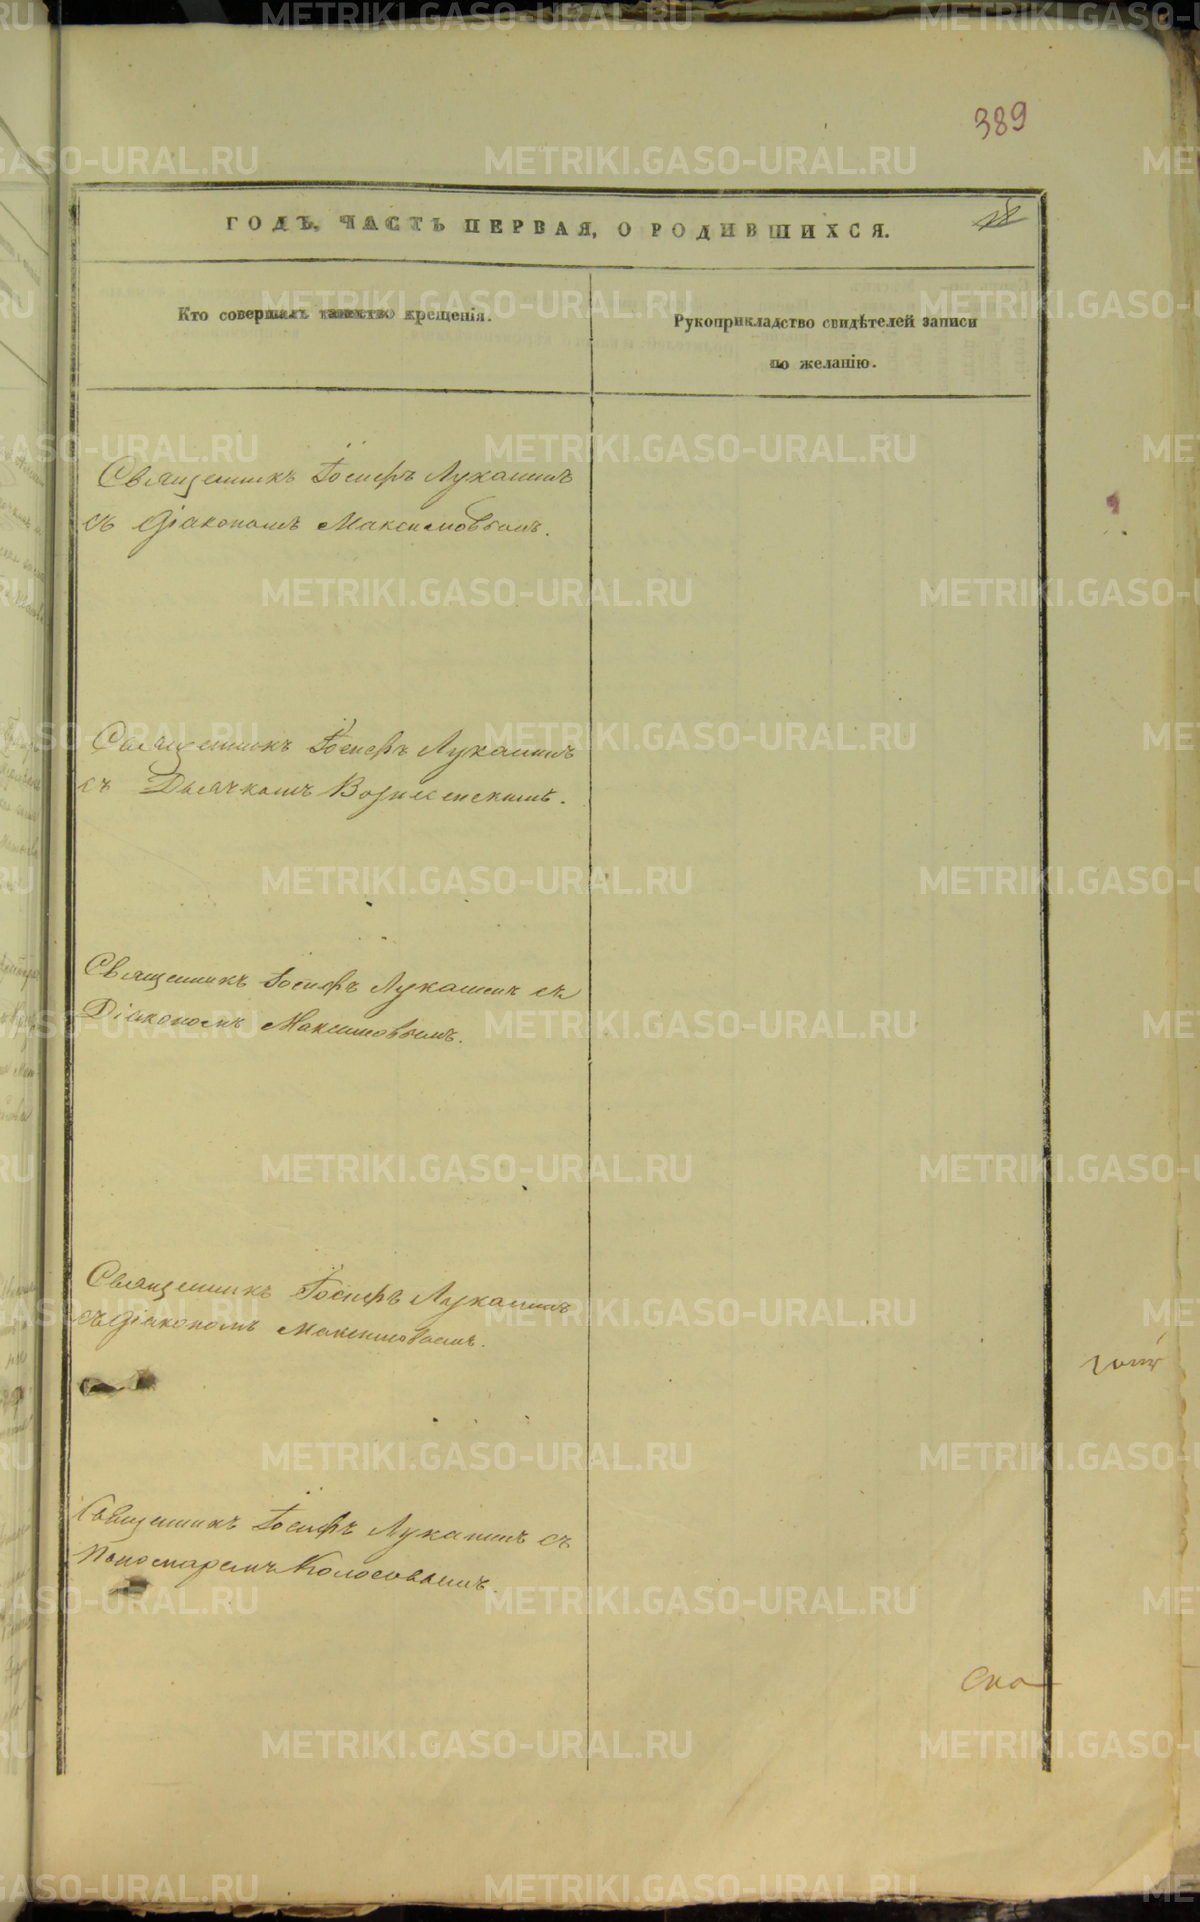 389
ГОДЪ, ЧАСТЬ ПЕРВАЯ, О РОДИВШИХСЯ.
Кто совершалъ таинство крещенія.
Рукоприкладство свидѣтелей записи
по желанію.
Священникъ Іосифъ Лукашинъ
съ Діакономъ Максимовымъ.
Священникъ Іосифъ Лукашинъ
съ Дьячкомъ Вознесенскимъ.
Священникъ Іосифъ Лукашинъ съ
Діакономъ Максимовымъ.
Священникъ Іосифъ Лукашинъ
съ Діакономъ Максимовымъ.
Священникъ Іосифъ Лукашинъ съ
Пономаремъ Колосовымъ.
Ско
METRIKI.GASO-URAL.RU